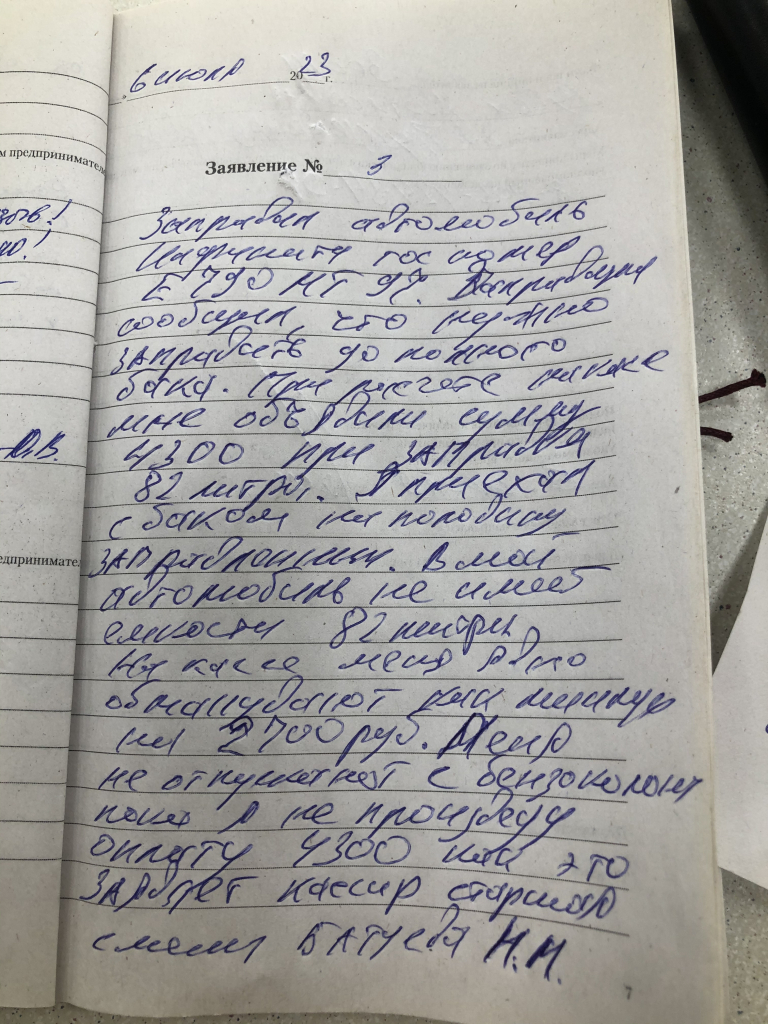 6 июля 2023 г.
м предпринимате
Заявление № 3
Заправил автомобиль
гос номер
Е 790 МТ 97. Заправщик
сообщил, что нужно
заправить до полного
бака. При расчете на кассе
мне объявили сумму
4300 при заправке
82 литра. Я приехал
с баком на половину
заправленным. В мой
автомобиль не имеет
емкости 82 литры
На кассе меня явно
обманывают как минимум
на 2700 руб. Меня
не отпускают с бензоколонки
едпринимател
пока я не произведу
оплату 4300 как это
заявляет кассир старшая
смены БАТУЕВА Н.Н.
О.В.
7